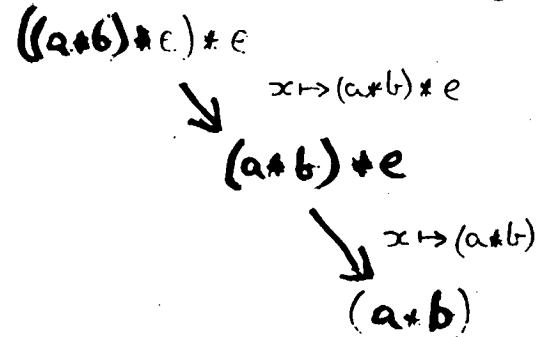 ((a*b)*e)*e
x↦(a*b)*e
(a*b)*e
x↦(a*b)
(a*b)